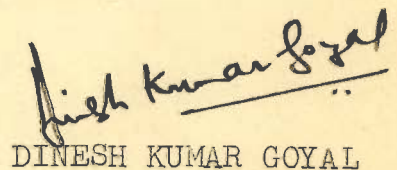 Dinesh Kumar Goyal
DINESH KUMAR GOYAL